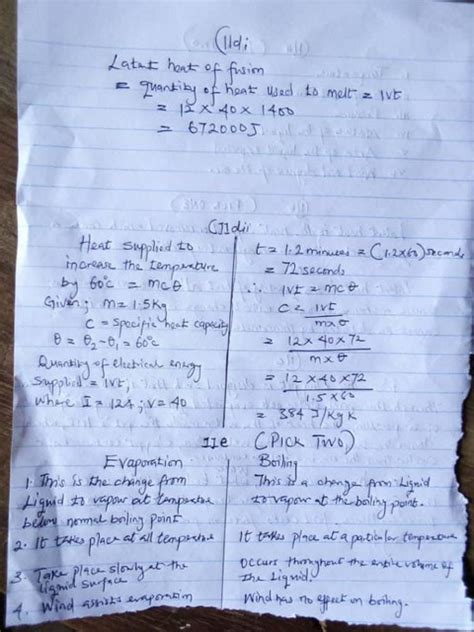 11di
Latent heat of fusion
= quantity of heat used to melt = Ivt
= 12 x 40 x 1400
= 672000J
11dii
Heat supplied to
increase the temperature
by 60°c = mcθ
Given; m = 1.5kg
c = specific heat capacity
θ = θ₂-θ₁ = 60°c
Quantity of electrical energy
supplied = Ivt,
where I = 12A; v = 40
t = 1.2 minutes = (1.2x60) seconds
= 72 seconds
∴ Ivt = mcθ
c = Ivt
mxθ
= 12 x 40 x 72
mxθ
= 12 x 40 x 72
1.5 x 60
= 384 J/kgK
11e (PICK TWO)
Evaporation
1. This is the change from
Liquid to vapour at temperature
below normal boiling point
2. It takes place at all temperature
3. Take place slowly at the
liquid surface
4. Wind assists evaporation
Boiling
This is a change from Liquid
to vapour at the boiling point.
It takes place at a particular temperature
Occurs throughout the entire volume of
the Liquid.
Wind has no effect on boiling.